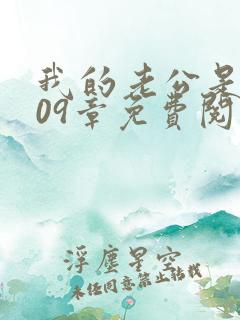 我的老公是
09章免费閱
浮塵星空
未经同意禁止转载